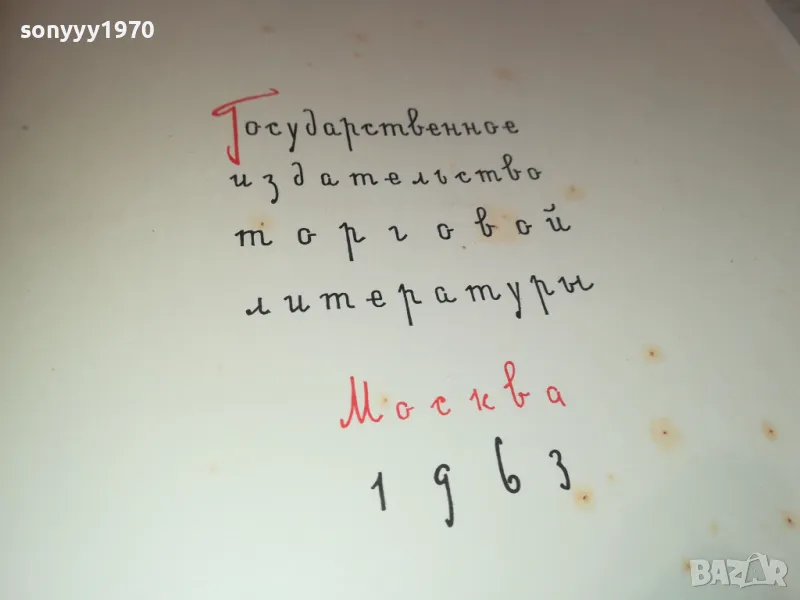 sonyyy1970
Государственное
издательство
торговой
литературы
Москва
1963
BAZAR